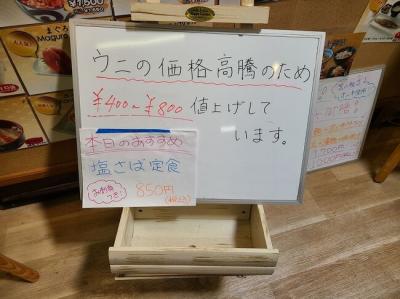 ウニの価格高騰のため
¥400～¥800 値上げして
います。
本日のおすすめ
塩さば定食
お刺身つき
850円
(税込)
¥1,500
まぐろ
Maguro